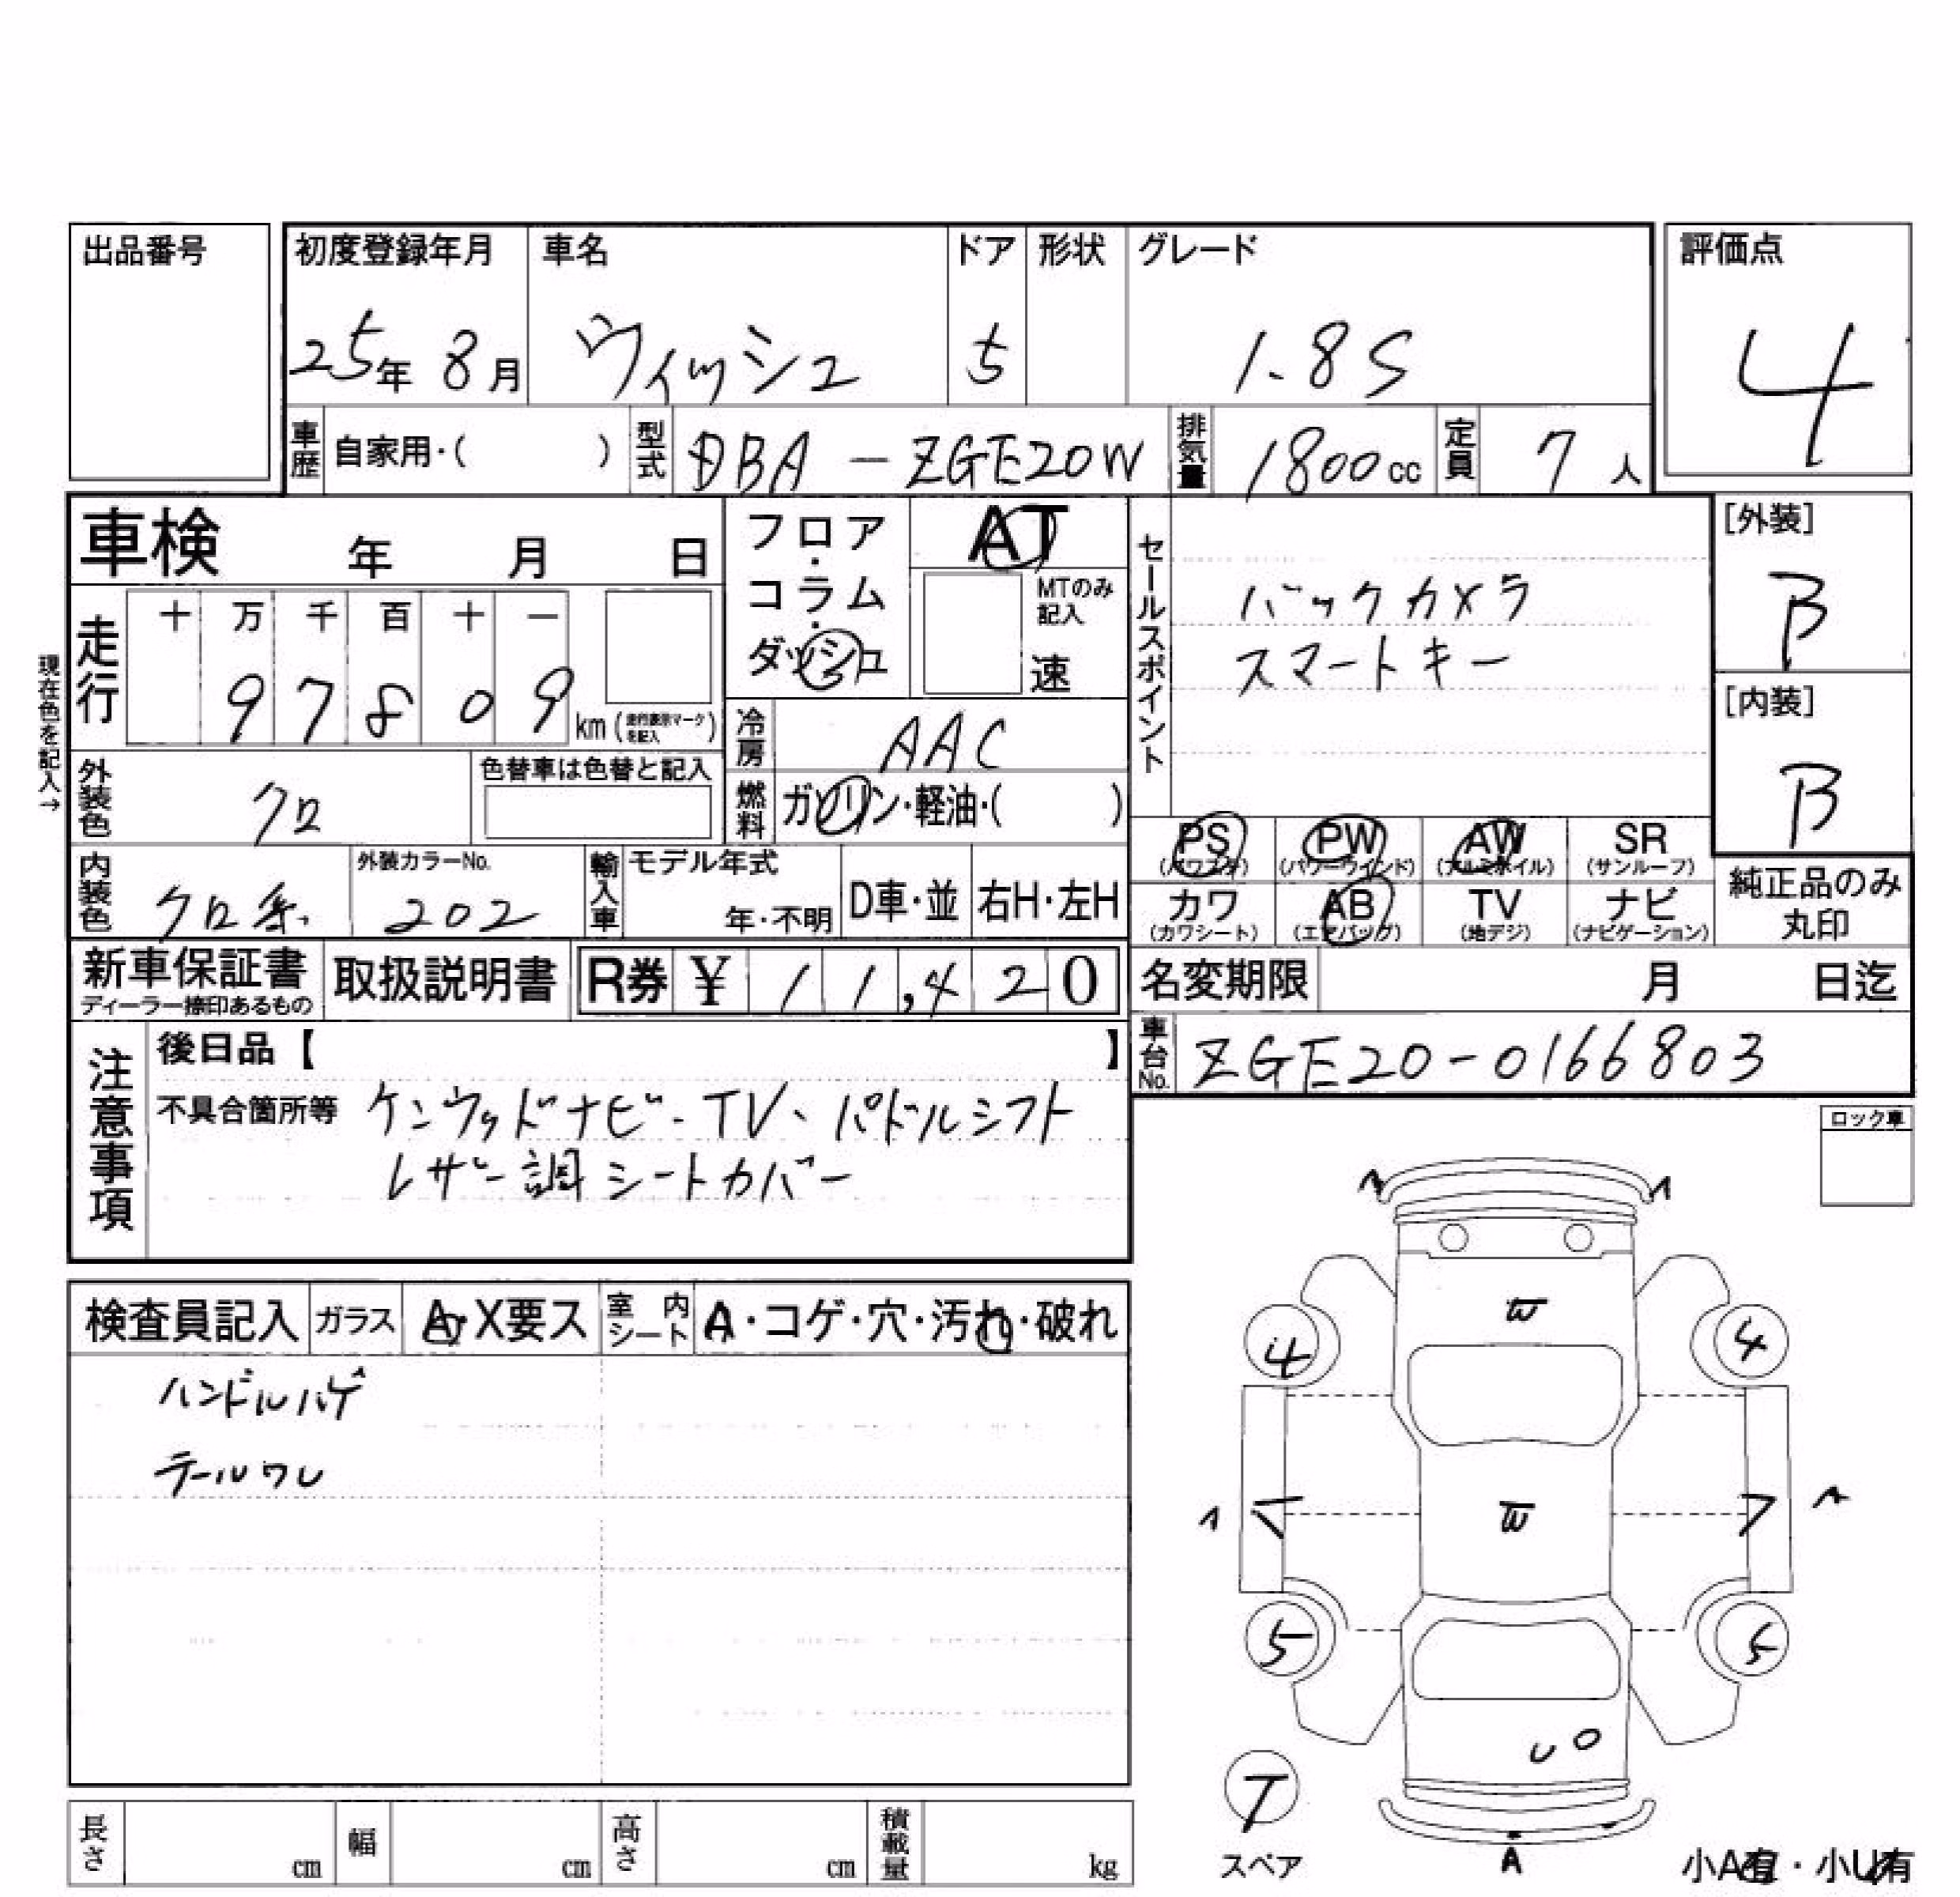 出品番号
初度登録年月 車名 ドア 形状 グレード 評価点
25年 8月 ヴィッシュ 5 1.8S 4
車歴 自家用・( ) 型式 DBA-ZGE20W 排気量 1800cc 定員 7人
車検 年 月 日
フロア・コラム・ダッシュ
AT
MTのみ記入
速
セールスポイント
バックカメラ
スマートキー
[外装]
B
[内装]
B
現在色を記入→
走行 十 万 千 百 十 一
97809 km (走行表示マークを記入)
冷房 AAC
外装色 クロ 色替車は色替と記入
燃料 ガソリン・軽油・( )
PS PW AW SR
(パワステ) (パワーウインド) (アルミホイル) (サンルーフ)
カワ AB TV ナビ
(カワシート) (エアバッグ) (地デジ) (ナビゲーション)
純正品のみ
丸印
内装色 クロ系 外装カラーNo. 202 輸入車 モデル年式 年・不明 D車・並 右H・左H
新車保証書 取扱説明書 R券 ¥ 11,420
ディーラー捺印あるもの
名変期限 月 日迄
車台No. ZGE20-0166803
注意事項
後日品【 】
不具合箇所等 ケンウッドナビ・TV、パドルシフト
レザー調シートカバー
ロック車
検査員記入 ガラス A・X要ス 室内シート A・コゲ・穴・汚れ・破れ
ハンドルハゲ
テールワレ
4 4
5 5
T
スペア
A
小A有・小U有
長さ cm 幅 cm 高さ cm 積載量 kg